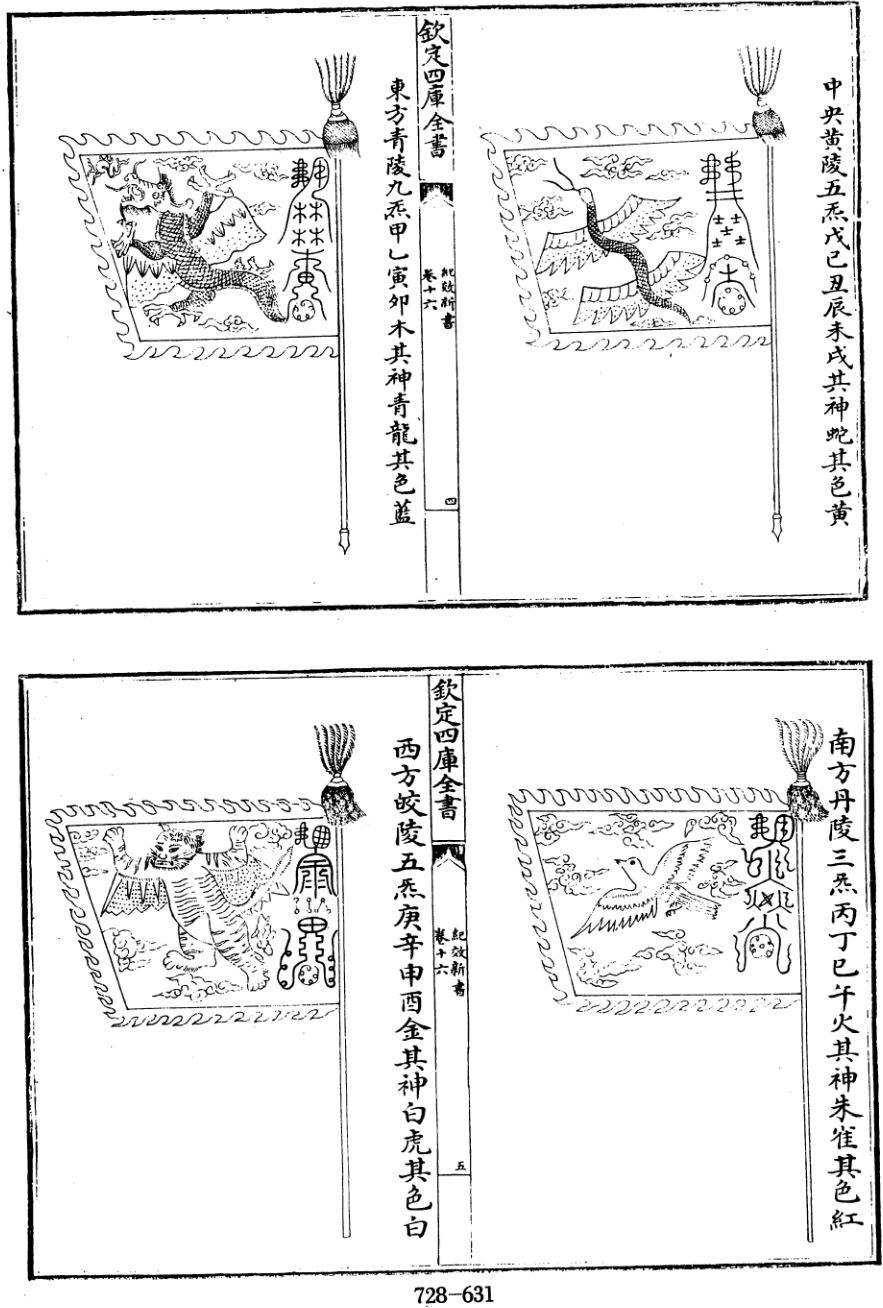 中央黄陵五炁戊己丑辰未戌其神蛇其色黄
欽定四庫全書
紀效新書
卷十六
四
東方青陵九炁甲乙寅卯木其神青龍其色藍
南方丹陵三炁丙丁巳午火其神朱雀其色紅
欽定四庫全書
紀效新書
卷十六
五
西方皎陵五炁庚辛申酉金其神白虎其色白
728-631